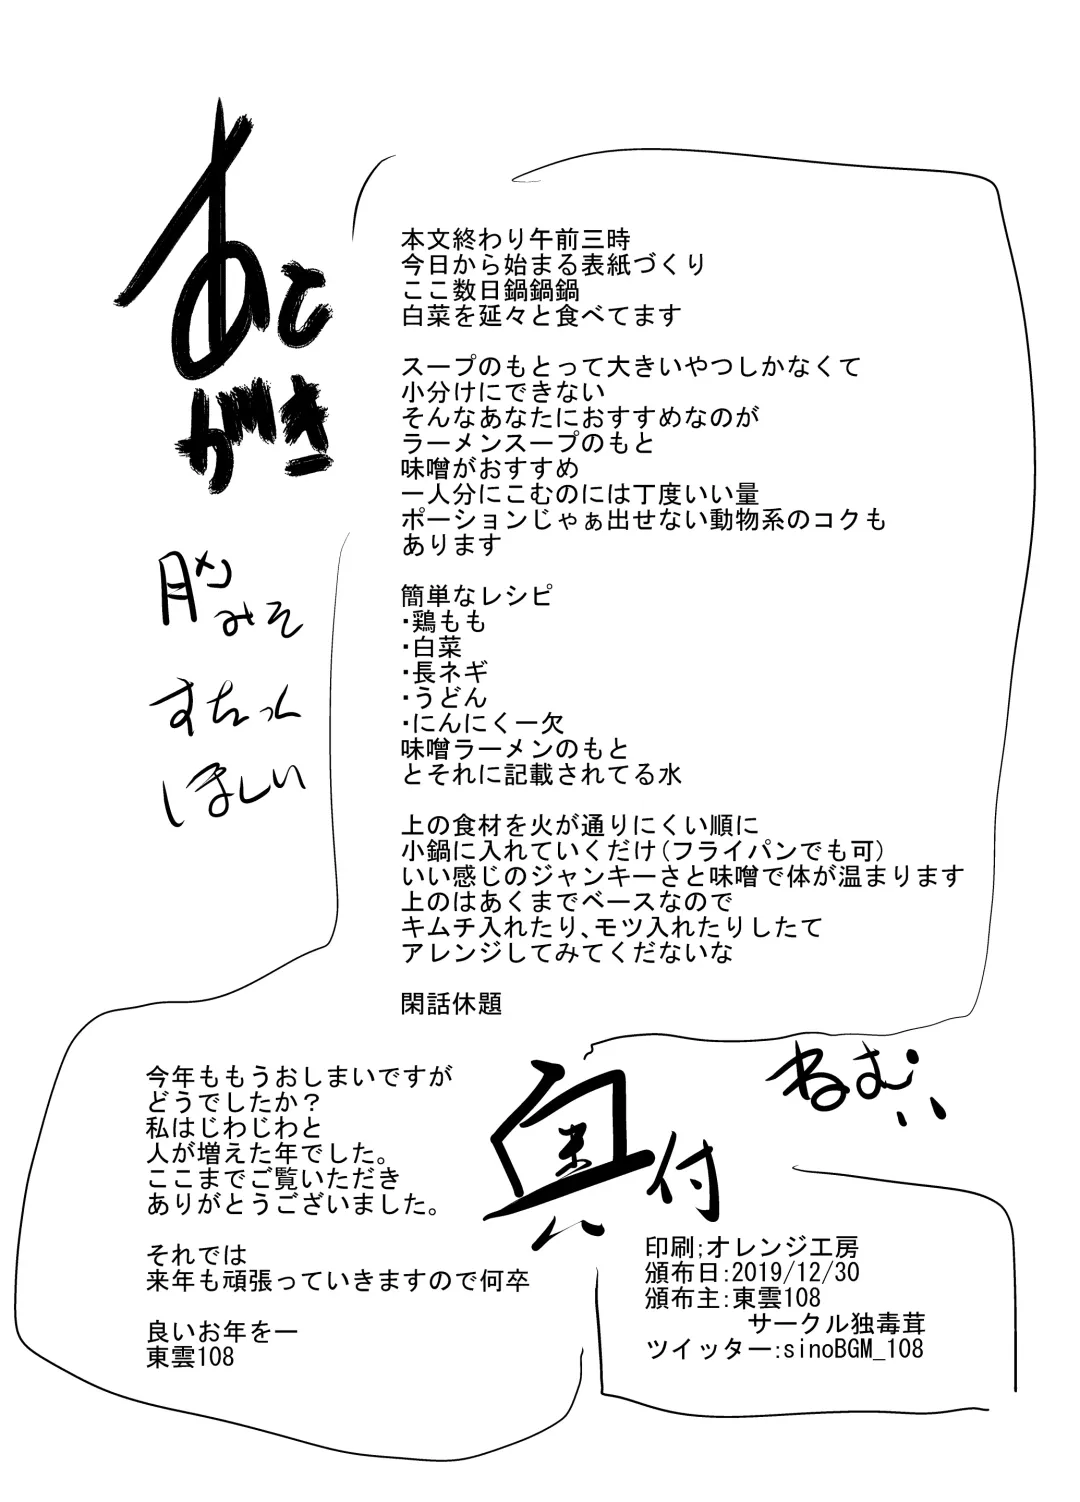 あとがき
本文終わり午前三時
今日から始まる表紙づくり
ここ数日鍋鍋鍋
白菜を延々と食べてます
スープのもとって大きいやつしかなくて
小分けにできない
そんなあなたにおすすめなのが
ラーメンスープのもと
味噌がおすすめ
一人分にこむのには丁度いい量
ポーションじゃぁ出せない動物系のコクも
あります
簡単なレシピ
・鶏もも
・白菜
・長ネギ
・うどん
・にんにく一欠
味噌ラーメンのもと
とそれに記載されてる水
上の食材を火が通りにくい順に
小鍋に入れていくだけ(フライパンでも可)
いい感じのジャンキーさと味噌で体が温まります
上のはあくまでベースなので
キムチ入れたり、モツ入れたりしたて
アレンジしてみてくだないな
閑話休題
みそ
すちっく
ほしい
今年ももうおしまいですが
どうでしたか？
私はじわじわと
人が増えた年でした。
ここまでご覧いただき
ありがとうございました。
それでは
来年も頑張っていきますので何卒
良いお年をー
東雲108
奥付
ねむい
印刷;オレンジ工房
頒布日:2019/12/30
頒布主:東雲108
サークル独毒茸
ツイッター:sinoBGM_108